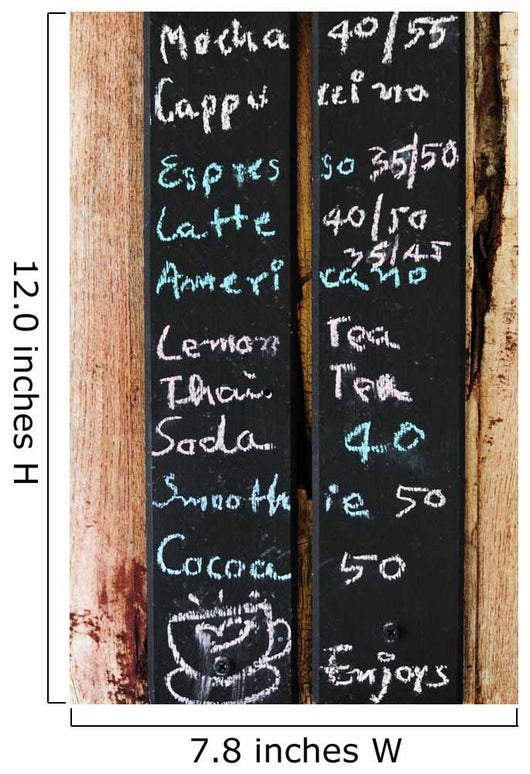 Mocha 40/55
Cappuccino
Espresso 35/50
Latte 40/50
35/45
Americano
Lemon Tea
Thai Tea
Soda 40
Smoothie 50
Cocoa 50
Enjoys
12.0 inches H
7.8 inches W